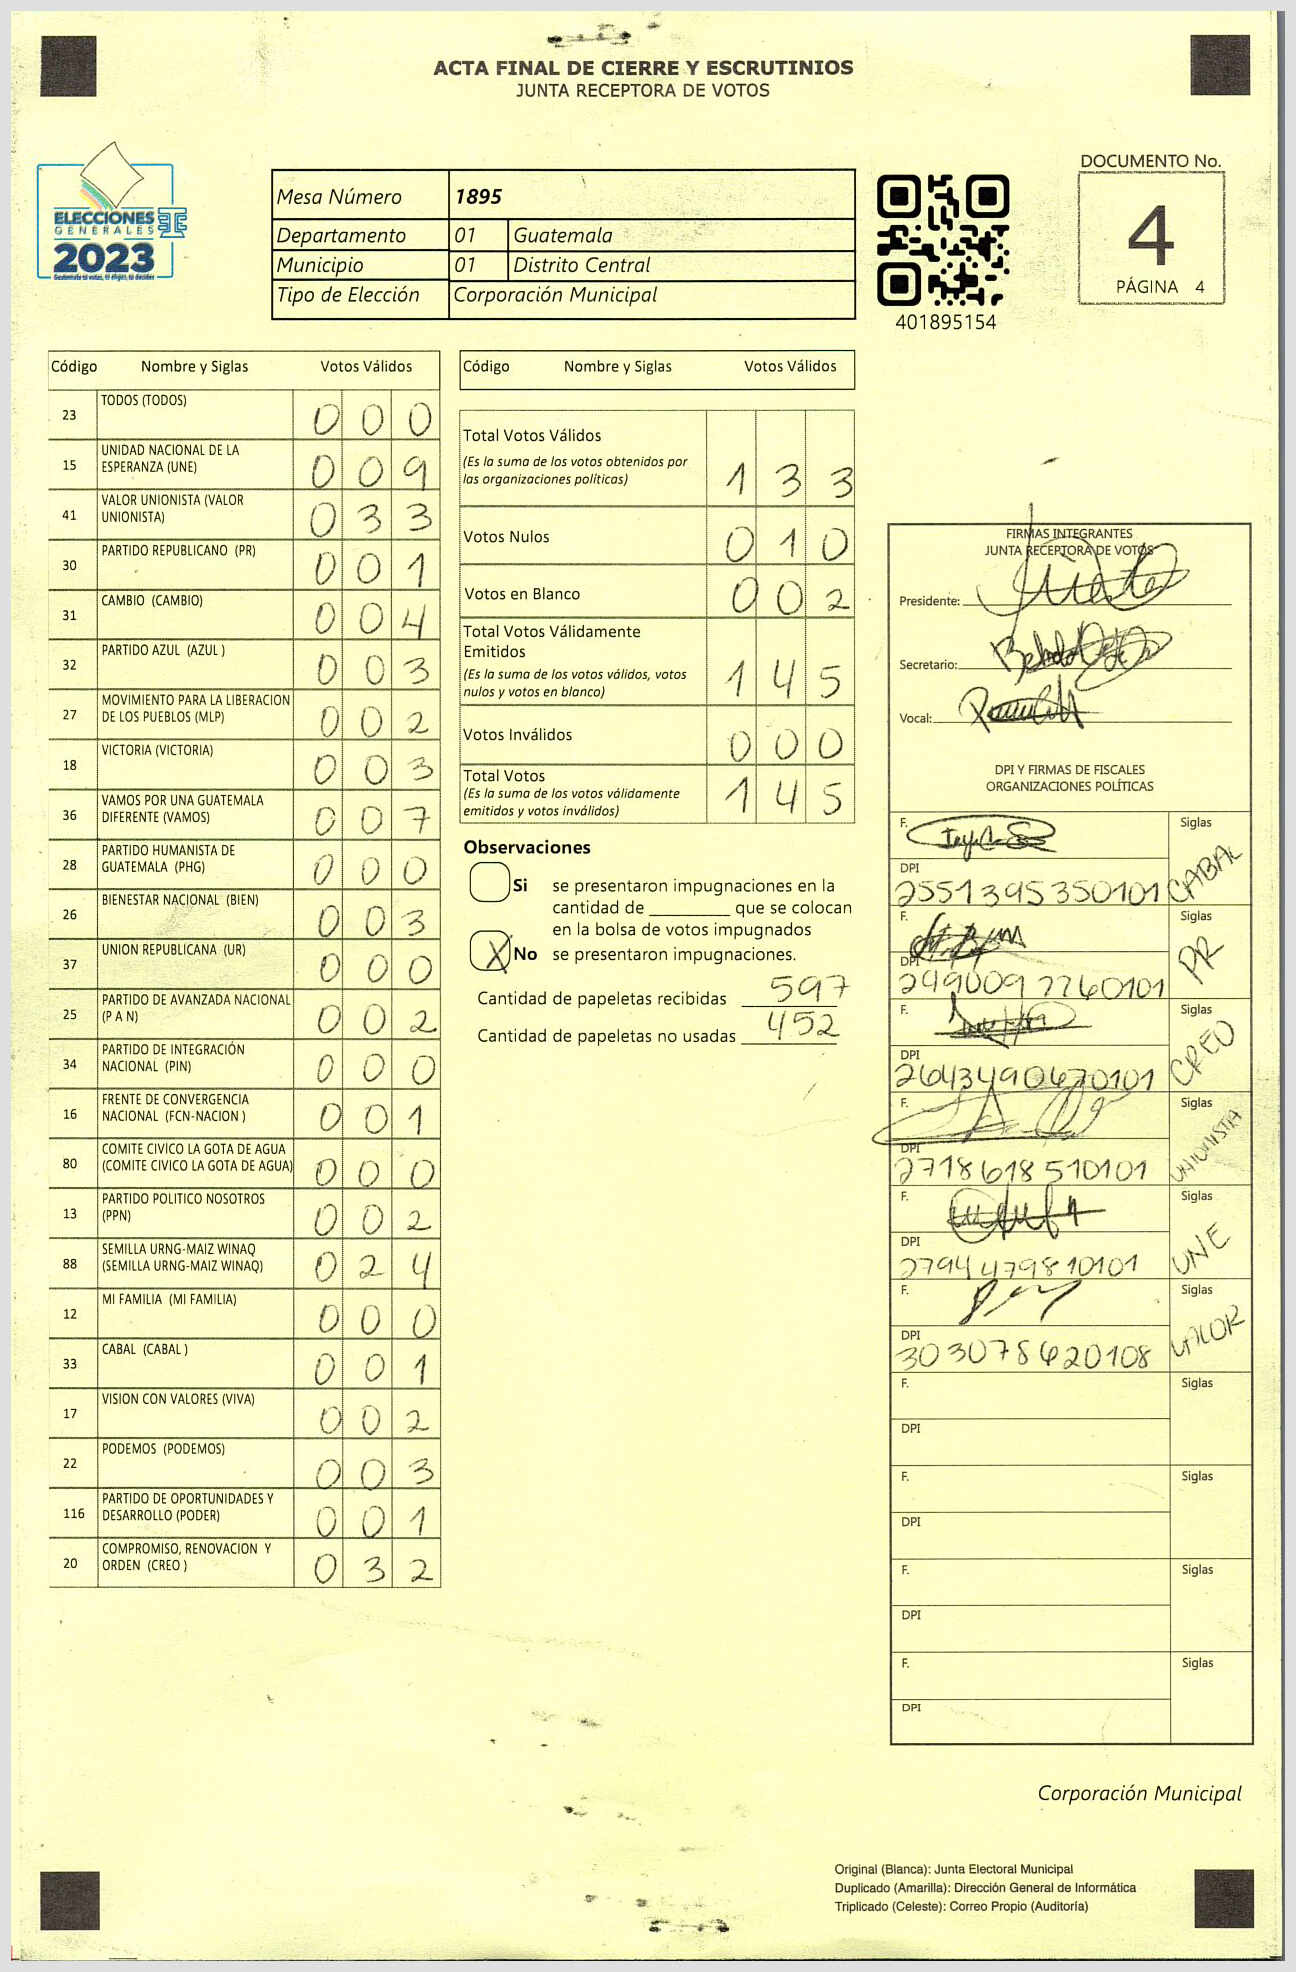 ACTA FINAL DE CIERRE Y ESCRUTINIOS
JUNTA RECEPTORA DE VOTOS
ELECCIONES
GENERALES
2023
Mesa Número 1895
Departamento 01 Guatemala
Municipio 01 Distrito Central
Tipo de Elección Corporación Municipal
401895154
DOCUMENTO No.
4
PÁGINA 4
Código Nombre y Siglas Votos Válidos
23 TODOS (TODOS) 0 0 0
15 UNIDAD NACIONAL DE LA
ESPERANZA (UNE) 0 0 9
41 VALOR UNIONISTA (VALOR
UNIONISTA) 0 3 3
30 PARTIDO REPUBLICANO (PR) 0 0 1
31 CAMBIO (CAMBIO) 0 0 4
32 PARTIDO AZUL (AZUL ) 0 0 3
27 MOVIMIENTO PARA LA LIBERACION
DE LOS PUEBLOS (MLP) 0 0 2
18 VICTORIA (VICTORIA) 0 0 3
36 VAMOS POR UNA GUATEMALA
DIFERENTE (VAMOS) 0 0 7
28 PARTIDO HUMANISTA DE
GUATEMALA (PHG) 0 0 0
26 BIENESTAR NACIONAL (BIEN) 0 0 3
37 UNION REPUBLICANA (UR) 0 0 0
25 PARTIDO DE AVANZADA NACIONAL
(P A N) 0 0 2
34 PARTIDO DE INTEGRACIÓN
NACIONAL (PIN) 0 0 0
16 FRENTE DE CONVERGENCIA
NACIONAL (FCN-NACION ) 0 0 1
80 COMITE CIVICO LA GOTA DE AGUA
(COMITE CIVICO LA GOTA DE AGUA) 0 0 0
13 PARTIDO POLITICO NOSOTROS
(PPN) 0 0 2
88 SEMILLA URNG-MAIZ WINAQ
(SEMILLA URNG-MAIZ WINAQ) 0 2 4
12 MI FAMILIA (MI FAMILIA) 0 0 0
33 CABAL (CABAL ) 0 0 1
17 VISION CON VALORES (VIVA) 0 0 2
22 PODEMOS (PODEMOS) 0 0 3
116 PARTIDO DE OPORTUNIDADES Y
DESARROLLO (PODER) 0 0 1
20 COMPROMISO, RENOVACION Y
ORDEN (CREO ) 0 3 2
Código Nombre y Siglas Votos Válidos
Total Votos Válidos
(Es la suma de los votos obtenidos por
las organizaciones políticas) 1 3 3
Votos Nulos 0 1 0
Votos en Blanco 0 0 2
Total Votos Válidamente
Emitidos
(Es la suma de los votos válidos, votos
nulos y votos en blanco) 1 4 5
Votos Inválidos 0 0 0
Total Votos
(Es la suma de los votos válidamente
emitidos y votos inválidos) 1 4 5
Observaciones
Si se presentaron impugnaciones en la
cantidad de ________ que se colocan
en la bolsa de votos impugnados
X No se presentaron impugnaciones.
Cantidad de papeletas recibidas 597
Cantidad de papeletas no usadas 452
FIRMAS INTEGRANTES
JUNTA RECEPTORA DE VOTOS
Presidente:
Secretario:
Vocal:
DPI Y FIRMAS DE FISCALES
ORGANIZACIONES POLÍTICAS
F. Siglas
DPI
2551395350101 CABAL
F. Siglas
DPI
2490097760101 PR
F. Siglas
DPI
2643490670101 CREO
F. Siglas
DPI
2718618510101 UNIONISTA
F. Siglas
DPI
2794479810101 UNE
F. Siglas
DPI
303078620108 VALOR
F. Siglas
DPI
F. Siglas
DPI
F. Siglas
DPI
F. Siglas
DPI
Corporación Municipal
Original (Blanca): Junta Electoral Municipal
Duplicado (Amarilla): Dirección General de Informática
Triplicado (Celeste): Correo Propio (Auditoría)